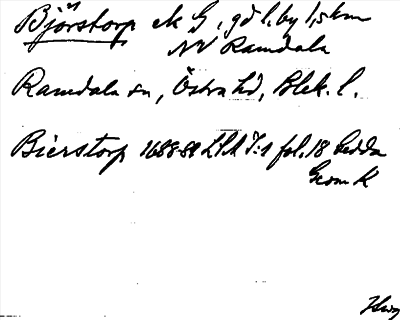 Björstorp ek G, gd l. by 1,5 km
NV Ramdala
Ramdala sn, Östra hd, Blek. l.
Bierstorp 1688-89 LSA I:1 fol. 18 bedda
Geom K